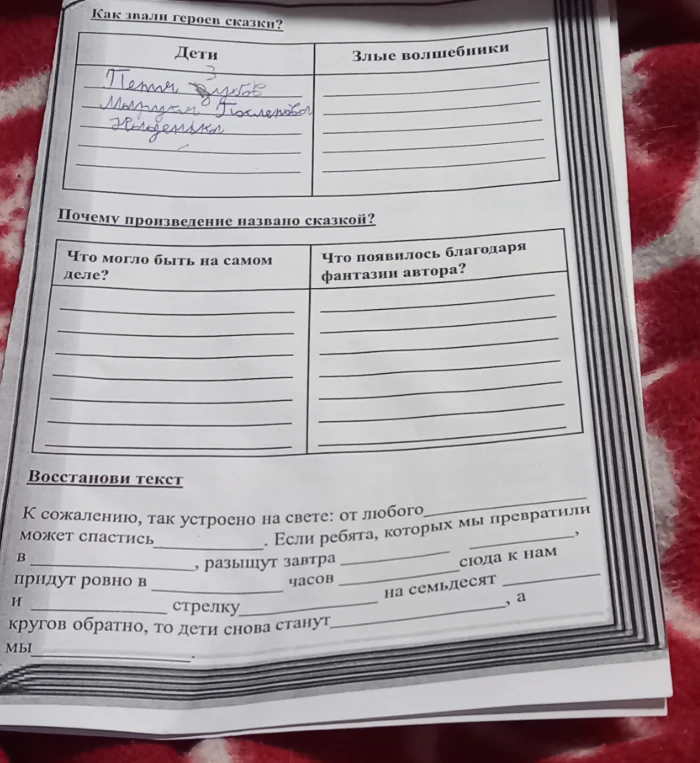 Как звали героев сказки?
Дети
Злые волшебники
Петя Зубов
Маруся Поспелова
Наденька
Почему произведение названо сказкой?
Что могло быть на самом
деле?
Что появилось благодаря
фантазии автора?
Восстанови текст
К сожалению, так устроено на свете: от любого
может спастись . Если ребята, которых мы превратили
в , разыщут завтра ,
придут ровно в часов сюда к нам
и стрелку на семьдесят
кругов обратно, то дети снова станут , а
мы .